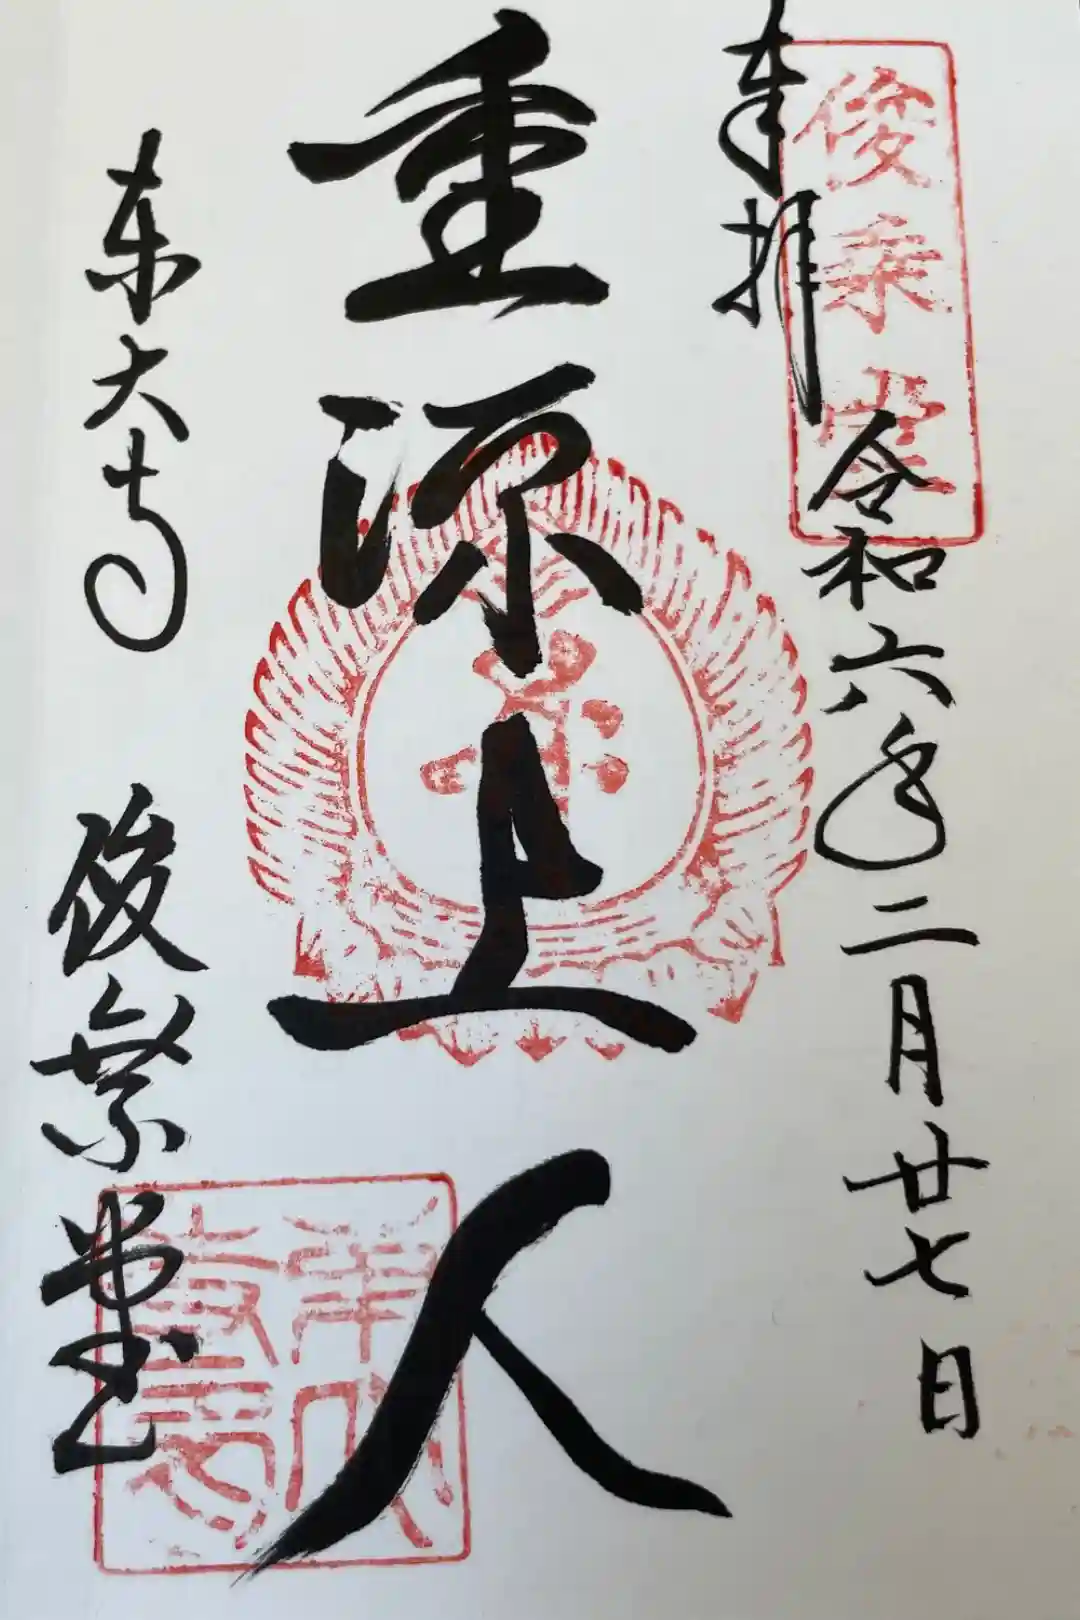 俊乗堂
奉拝
令和六年二月廿七日
重源上人
东大寺
俊乗堂